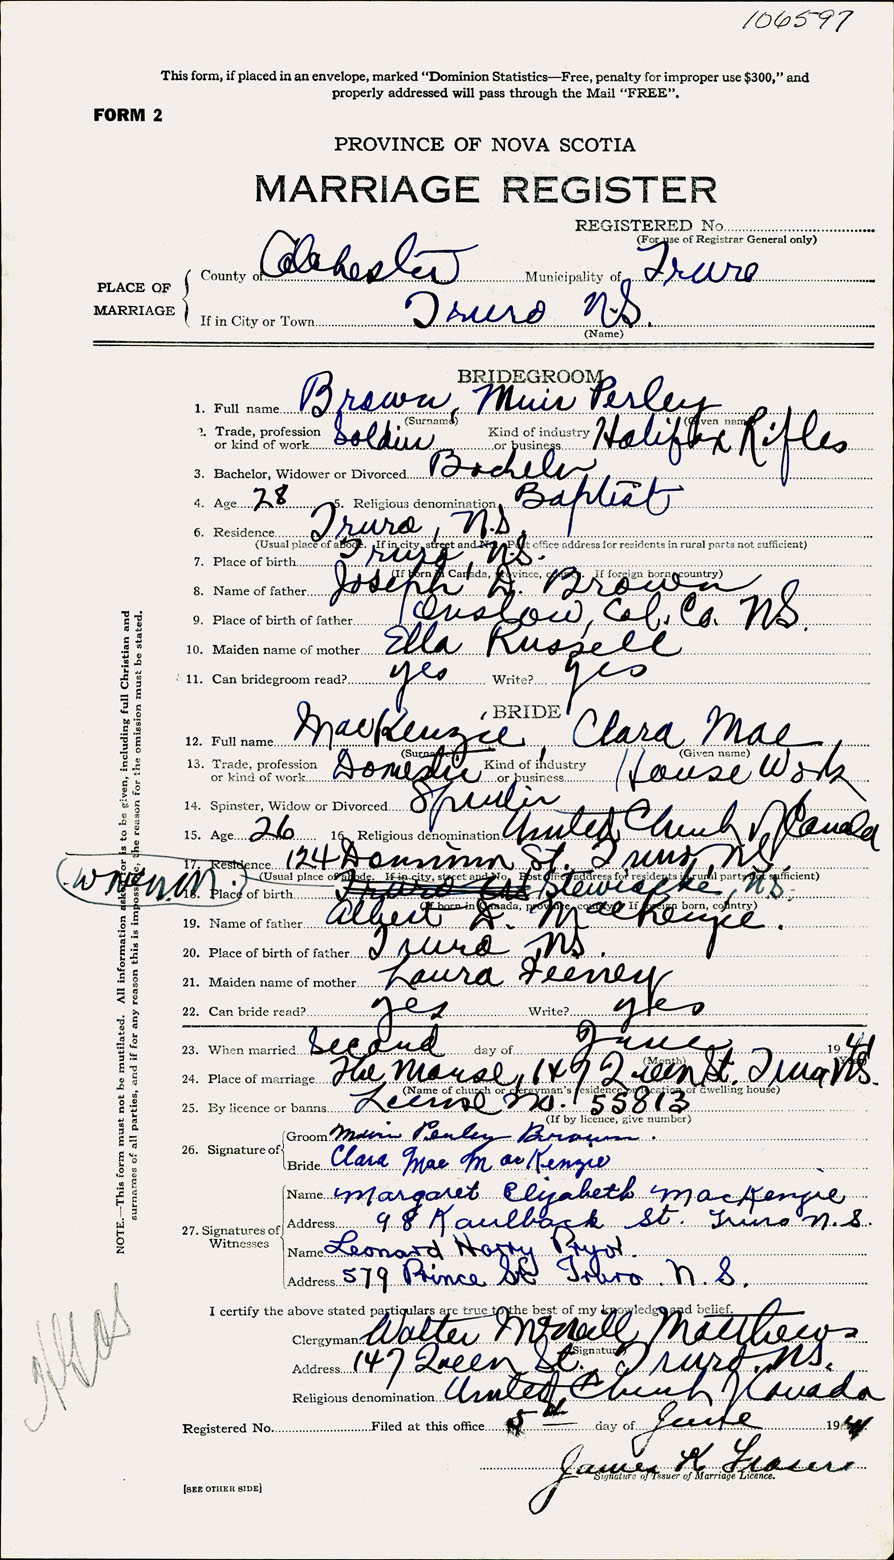 106597
This form, if placed in an envelope, marked "Dominion Statistics—Free, penalty for improper use $300," and
properly addressed will pass through the Mail "FREE".
FORM 2
PROVINCE OF NOVA SCOTIA
MARRIAGE REGISTER
REGISTERED No.
(For use of Registrar General only)
PLACE OF MARRIAGE
County of Colchester Municipality of Truro
If in City or Town Truro N.S.
(Name)
BRIDEGROOM
1. Full name Brown, Muir Perley
(Surname) (Given name)
2. Trade, profession or kind of work Soldier Kind of industry or business Halifax Rifles
3. Bachelor, Widower or Divorced Bachelor
4. Age 28 5. Religious denomination Baptist
6. Residence Truro, N.S.
(Usual place of abode. If in city, street and No. Post office address for residents in rural parts not sufficient)
7. Place of birth Truro, N.S.
(If born in Canada, province, county. If foreign born, country)
8. Name of father Joseph D. Brown
9. Place of birth of father Onslow, Col. Co. N.S.
10. Maiden name of mother Ella Russell
11. Can bridegroom read? yes Write? yes
BRIDE
12. Full name MacKenzie, Clara Mae
(Surname) (Given name)
13. Trade, profession or kind of work Domestic Kind of industry or business House Work
14. Spinster, Widow or Divorced Spinster
15. Age 26 16. Religious denomination United Church of Canada
17. Residence 124 Dominion St. Truro, N.S.
(Usual place of abode. If in city, street and No. Post office address for residents in rural parts not sufficient)
18. Place of birth Stewiacke, N.S.
(If born in Canada, province, county. If foreign born, country)
19. Name of father Albert D. MacKenzie.
20. Place of birth of father Truro N.S.
21. Maiden name of mother Laura Feeney
22. Can bride read? yes Write? yes
23. When married Second day of June 1941
(Month) (Year)
24. Place of marriage The Manse, 147 Queen St. Truro N.S.
(Name of church or clergyman's residence or location of dwelling house)
25. By licence or banns License No. 55813
(If by licence, give number)
26. Signature of
Groom Muir Perley Brown.
Bride Clara Mae MacKenzie
27. Signatures of Witnesses
Name Margaret Elizabeth MacKenzie
Address 98 Kaulback St. Truro N.S.
Name Leonard Harry Pryor.
Address 579 Prince St. Truro. N.S.
I certify the above stated particulars are true to the best of my knowledge and belief.
Clergyman Walter McNeill Matthews
(Signature)
Address 147 Queen St. Truro, N.S.
Religious denomination United Church of Canada
Registered No. Filed at this office 5th day of June 1941
James K Fraser
Signature of Issuer of Marriage Licence.
[SEE OTHER SIDE]
NOTE.—This form must not be mutilated. All information asked for is to be given, including full Christian and
surnames of all parties, and if for any reason this is impossible, the reason for the omission must be stated.